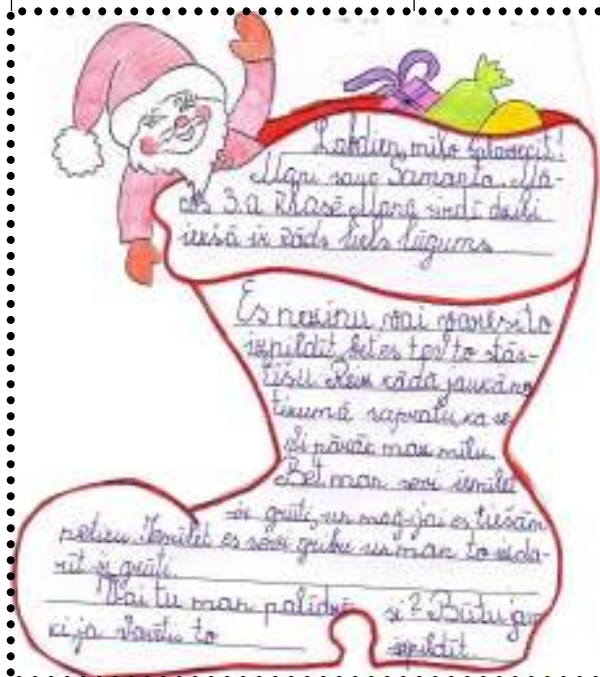 Labdien, mīļo Salavecīt!
Mani sauc Samanta. Mā-
cos 3.a klasē. Manā sirdī dziļi
iekšā ir kāds liels lūgums
Es nezinu, vai varēsi to
izpildīt, bet es tev to stās-
tīšu. Reiz kādā jaukā
sapratu, ka se-
vi pārāk maz mīlu.
Bet man sevi iemīlēt
ir grūti, un es tiešām
Iemīlēt es sevi gribu un man to izda-
rīt ir grūti.
Vai tu man palīdzē- si? Būtu
ja Varētu to izpildīt.